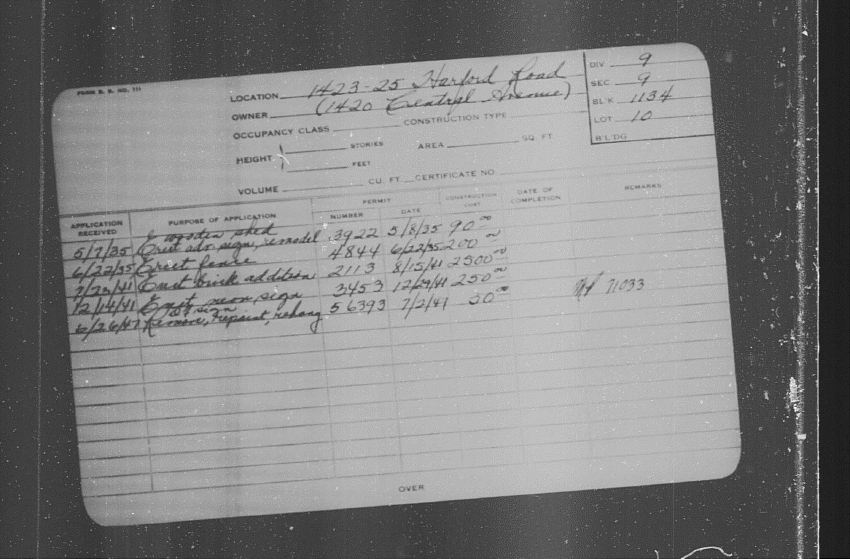 FORM B. B. NO. 111
LOCATION 1423-25 Harford Road
OWNER (1420 Central Avenue)
OCCUPANCY CLASS CONSTRUCTION TYPE
HEIGHT STORIES FEET AREA SQ. FT.
VOLUME CU. FT. CERTIFICATE NO.
DIV. 9
SEC. 9
BL'K 1134
LOT 10
BL'DG
APPLICATION RECEIVED PURPOSE OF APPLICATION PERMIT NUMBER DATE CONSTRUCTION COST DATE OF COMPLETION REMARKS
wooden shed
5/7/35 Erect adv. sign, remodel 3922 5/8/35 90.00
6/22/35 Erect fence 4844 6/22/35 200.00
7/23/41 Erect brick addition 2113 8/15/41 2500.00
12/14/41 Erect neon sign 3453 12/29/41 250.00
sign
6/26/47 Remove, repaint, rehang 56393 7/2/41 50.00 71033
OVER